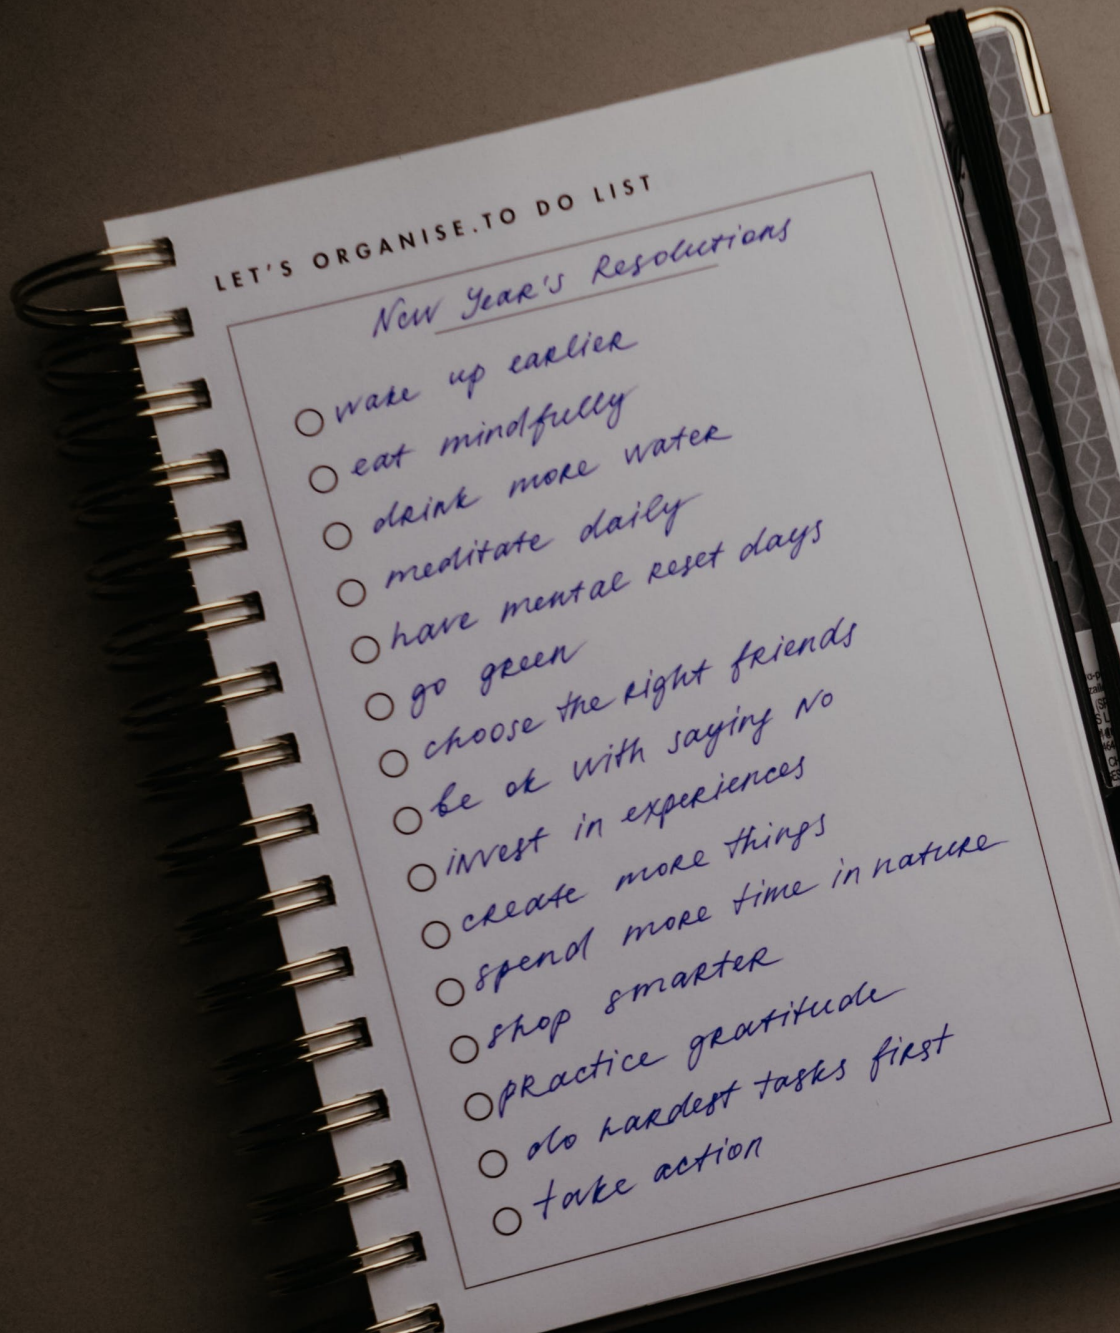 LET'S ORGANISE.TO DO LIST
New Year's Resolutions
wake up earlier
eat mindfully
drink more water
meditate daily
have mental reset days
go green
choose the right friends
be ok with saying No
invest in experiences
create more things
spend more time in nature
shop smarter
practice gratitude
do hardest tasks first
take action